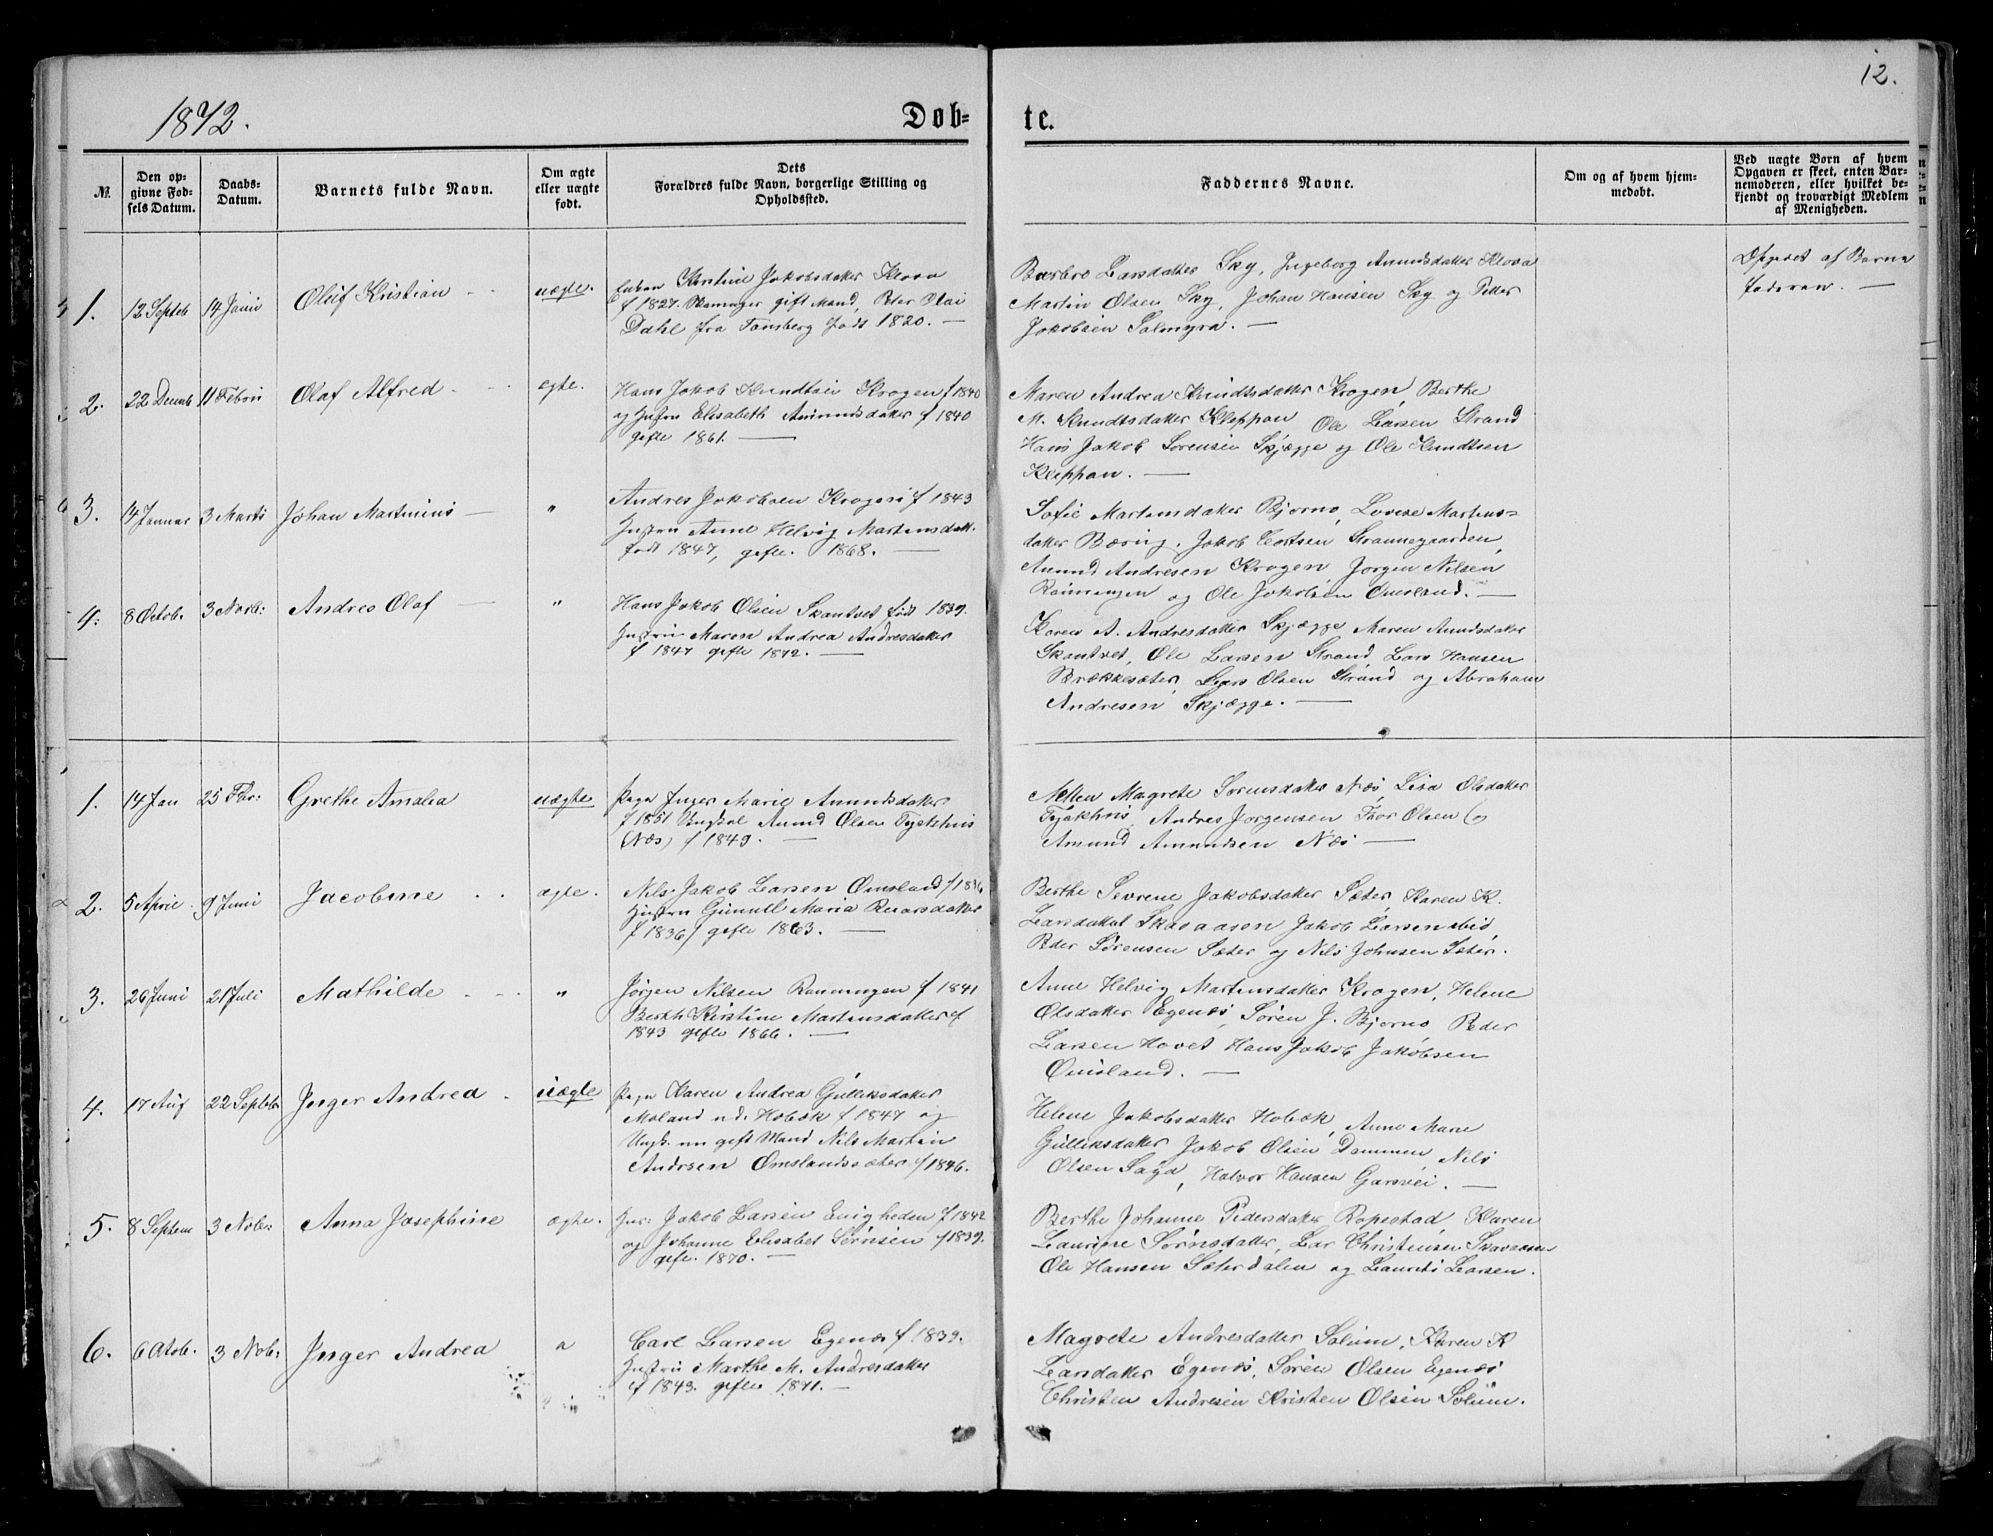 12.
1872.
Døb-
te.
№.
Den op-
givne Fød-
sels Datum.
Daabs-
Datum.
Barnets fulde Navn.
Om ægte
eller uægte
født.
Dets
Forældres fulde Navn, borgerlige Stilling og
Opholdssted.
Faddernes Navne.
Om og af hvem hjem-
medøbt.
Ved uægte Børn af hvem
Opgaven er skeet, enten Bar-
nemoderen, eller hvilket be-
kjendt og troværdigt Medlem
af Menigheden.
1. 12 Septb 14 Janu Oluf Kristian uægte.
Kirstine Jakobsdatter Klova
f 1827. gift Mand, Peder Olai
Dahl fra Tønsberg født 1820. —
Barbro Larsdatter Sky, Ingeborg Amundsdatter Klova
Martin Olsen Sky, Johan Hansen Sky og Peder
Jakobsen Salmyra. —
Opgivet af Barne
faderen. —
2. 22 Decemb 11 Febru Olaf Alfred egte.
Hans Jakob Kundtsen Krogen f 1840
og Hustru Elisabeth Amundsdatter f 1840
gifte 1861. —
Maren Andrea Knudtsdatter Krogen, Berthe
M. Knudtsdatter Kleppan Ole Larsen Strand
Hans Jakob Sørensen Skjægge og Ole Kundtsen
Kleppan. —
3. 14 Januar 3 Marts Johan Martinius — "
Andres Jakobsen Krogen f 1843
Hustru Anne Helvig Martinsdatt.
født 1847, gifte. 1868. —
Sofie Martinsdatter Bjørno, Lovise Martins-
datter Bæring, Jakob Strannegaarden,
Amund Andresen Krogen Jørgen Nilsen
Rønningen og Ole Jakobsen Omsland. —
4. 8 Octob. 3 Novb: Andreo Olaf — "
Hans Jakob Olsen Skantvet født 1839.
Hustru Maren Andrea Andresdatter
f 1847 gifte 1872. —
Karen A. Andresdatter Skjægge Maren Amundsdatter
Skantvet, Ole Larsen Strand, Lars Hansen
Brækkesæter, Lars Olsen Strand og Abraham
Andresen Skjægge. —
1. 14 Jan 25 Fbr: Grethe Amalia uægte
Pige Inger Marie Amundsdatter
f 1851 Ungkal Amund Olsen Tyskhus
(Næs) f 1849. —
Nellen Magrete Sørensdatter Næs, Lisa Olsdatter
Tyskhus, Andres Jørgensen Thor Olsen og
Amund Amundsen Næs —
2. 5 April 9 Juni Jacobine ægte.
Nils Jakob Larsen Omsland f 1836
Hustru Gunnell Maria Reiersdatter
f 1836 gifte 1863. —
Berthe Severene Jakobsdatter Sæter, Karen K.
Larsdatter Skavaasen Jakob Larsen ibid,
Peder Sørensen Sæter og Nils Johnsen Sæter.
3. 26 Juni 21 Juli Mathilde "
Jørgen Nilsen Rønningen f 1841
Berth Kirstine Martinsdatter f
1843 gifte 1866. —
Anne Helvig Martinsdatter Krogen, Helene
Olsdatter Egenes, Søren J. Bjørno Peder
Larsen Hovet Hans Jakob Jakobsen
Omsland. —
4. 17 Aug 22 Septbr Inger Andrea uægte
Pige Karen Andrea Gulliksdatter
Moland nd. Hobæk f 1847 og
Ungk. nu gift Mand Nils Martin
Andrsen Omslandssæter f 1846.
Helene Jakobsdatter Hobæk, Anne Marie
Gulliksdatter Jakob Olsen Dammen, Nils
Olsen Saga, Halvor Hansen Garsvei. —
5. 8 Septem 3 Nobr: Anna Josephine ægte.
Hus: Jakob Larsen Enigheden f 1842
og Johanne Elisabet Sørnsen f 1839.
gifte. 1870. —
Berthe Johanne Pedersdatter Ropestad, Karen
Laurine Sørnsdatter, Lar Christensen Skavaasen
Ole Hansen Sæterdalen og Laurits Larsen.
6. 6 Otob. 3 Nob: Inger Andrea "
Carl Larsen Egenes f 1839.
Hustru Marthe M. Andresdatter
f 1843. gifte 1871. —
Magrete Andresdatter Solum, Karen K
Larsdatter Egenes, Søren Olsen Egenes
Christen Andresen Kristen Olsen Solum.